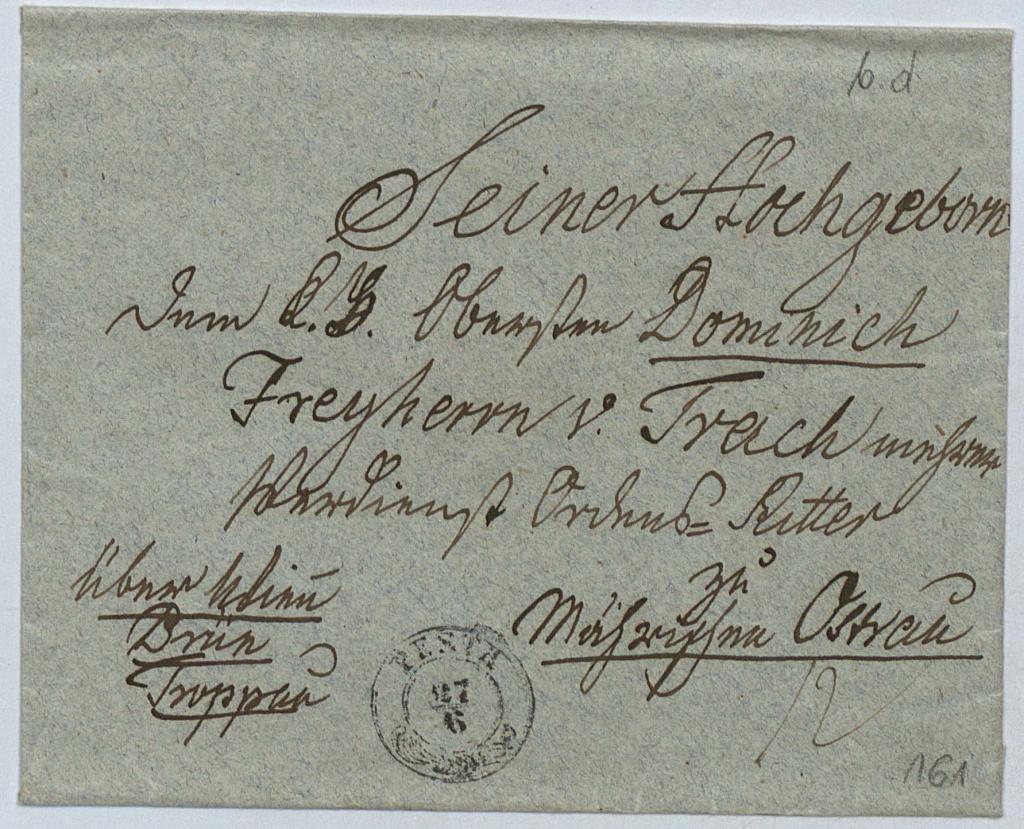 b. d
Seiner Hochgeborn
Dem K.K. Obersten Dominich
Freyherrn v. Trach mehrerer
Verdienst Ordens= Ritter
zu
Mährischen Ostrau
über Wien
Brün
Troppau
PESTH
27
6
12
161